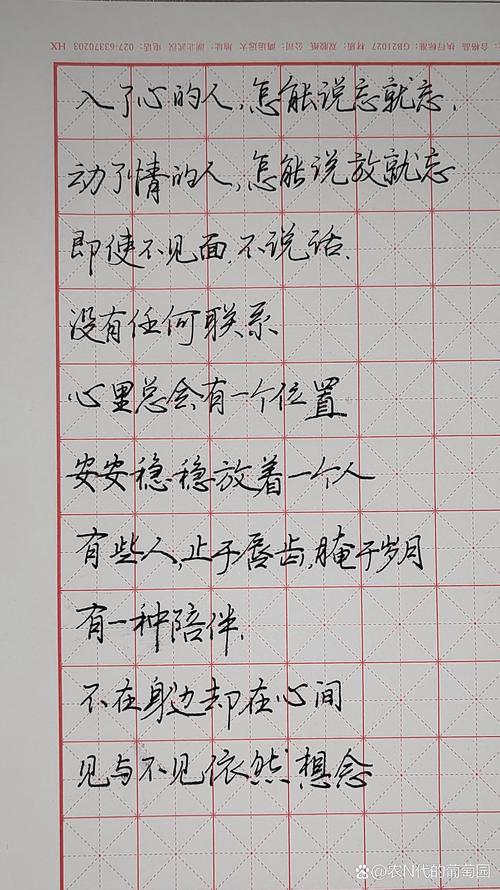 合格品 执行标准:GB21027 材质:双胶纸 公司:两运远大 地址:湖北武汉 电话:027-63370203 HX
入了心的人,怎能说忘就忘.
动了情的人,怎能说放就忘
即使不见面.不说话.
没有任何联系
心里总会有一个位置
安安稳稳放着一个人
有些人,止于唇齿,腌于岁月
有一种陪伴.
不在身边却在心间
见与不见依然想念
@农N代的葡萄园